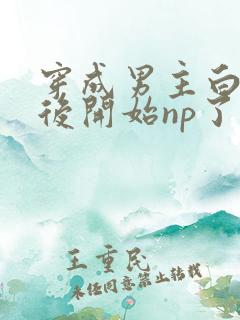 穿成男主白
後開始np了
王重民
未经同意禁止转载